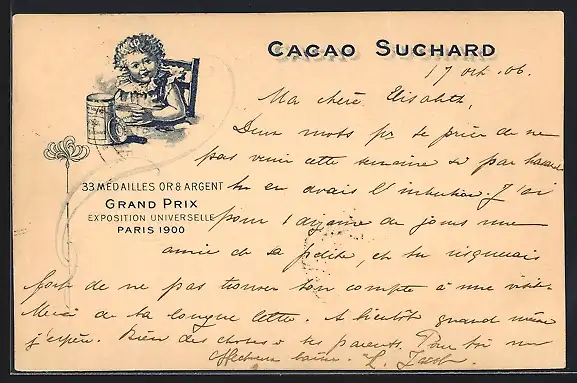 CACAO SUCHARD
17 oct. 06.
Ma chère Elisabeth,
Deux mots pr te prier de ne
pas venir cette semaine si par hasard
33 MÉDAILLES OR & ARGENT
GRAND PRIX
EXPOSITION UNIVERSELLE
PARIS 1900
tu en avais l'intention. J'ai
pour 1 dizaine de jours une
amie de la petite, et tu risquerais
fort de ne pas trouver ton compte à une visite.
Merci de ta longue lettre. A bientôt quand même
j'espère. Bien des choses à tes parents. Pour toi mon
affectueux baiser. L.